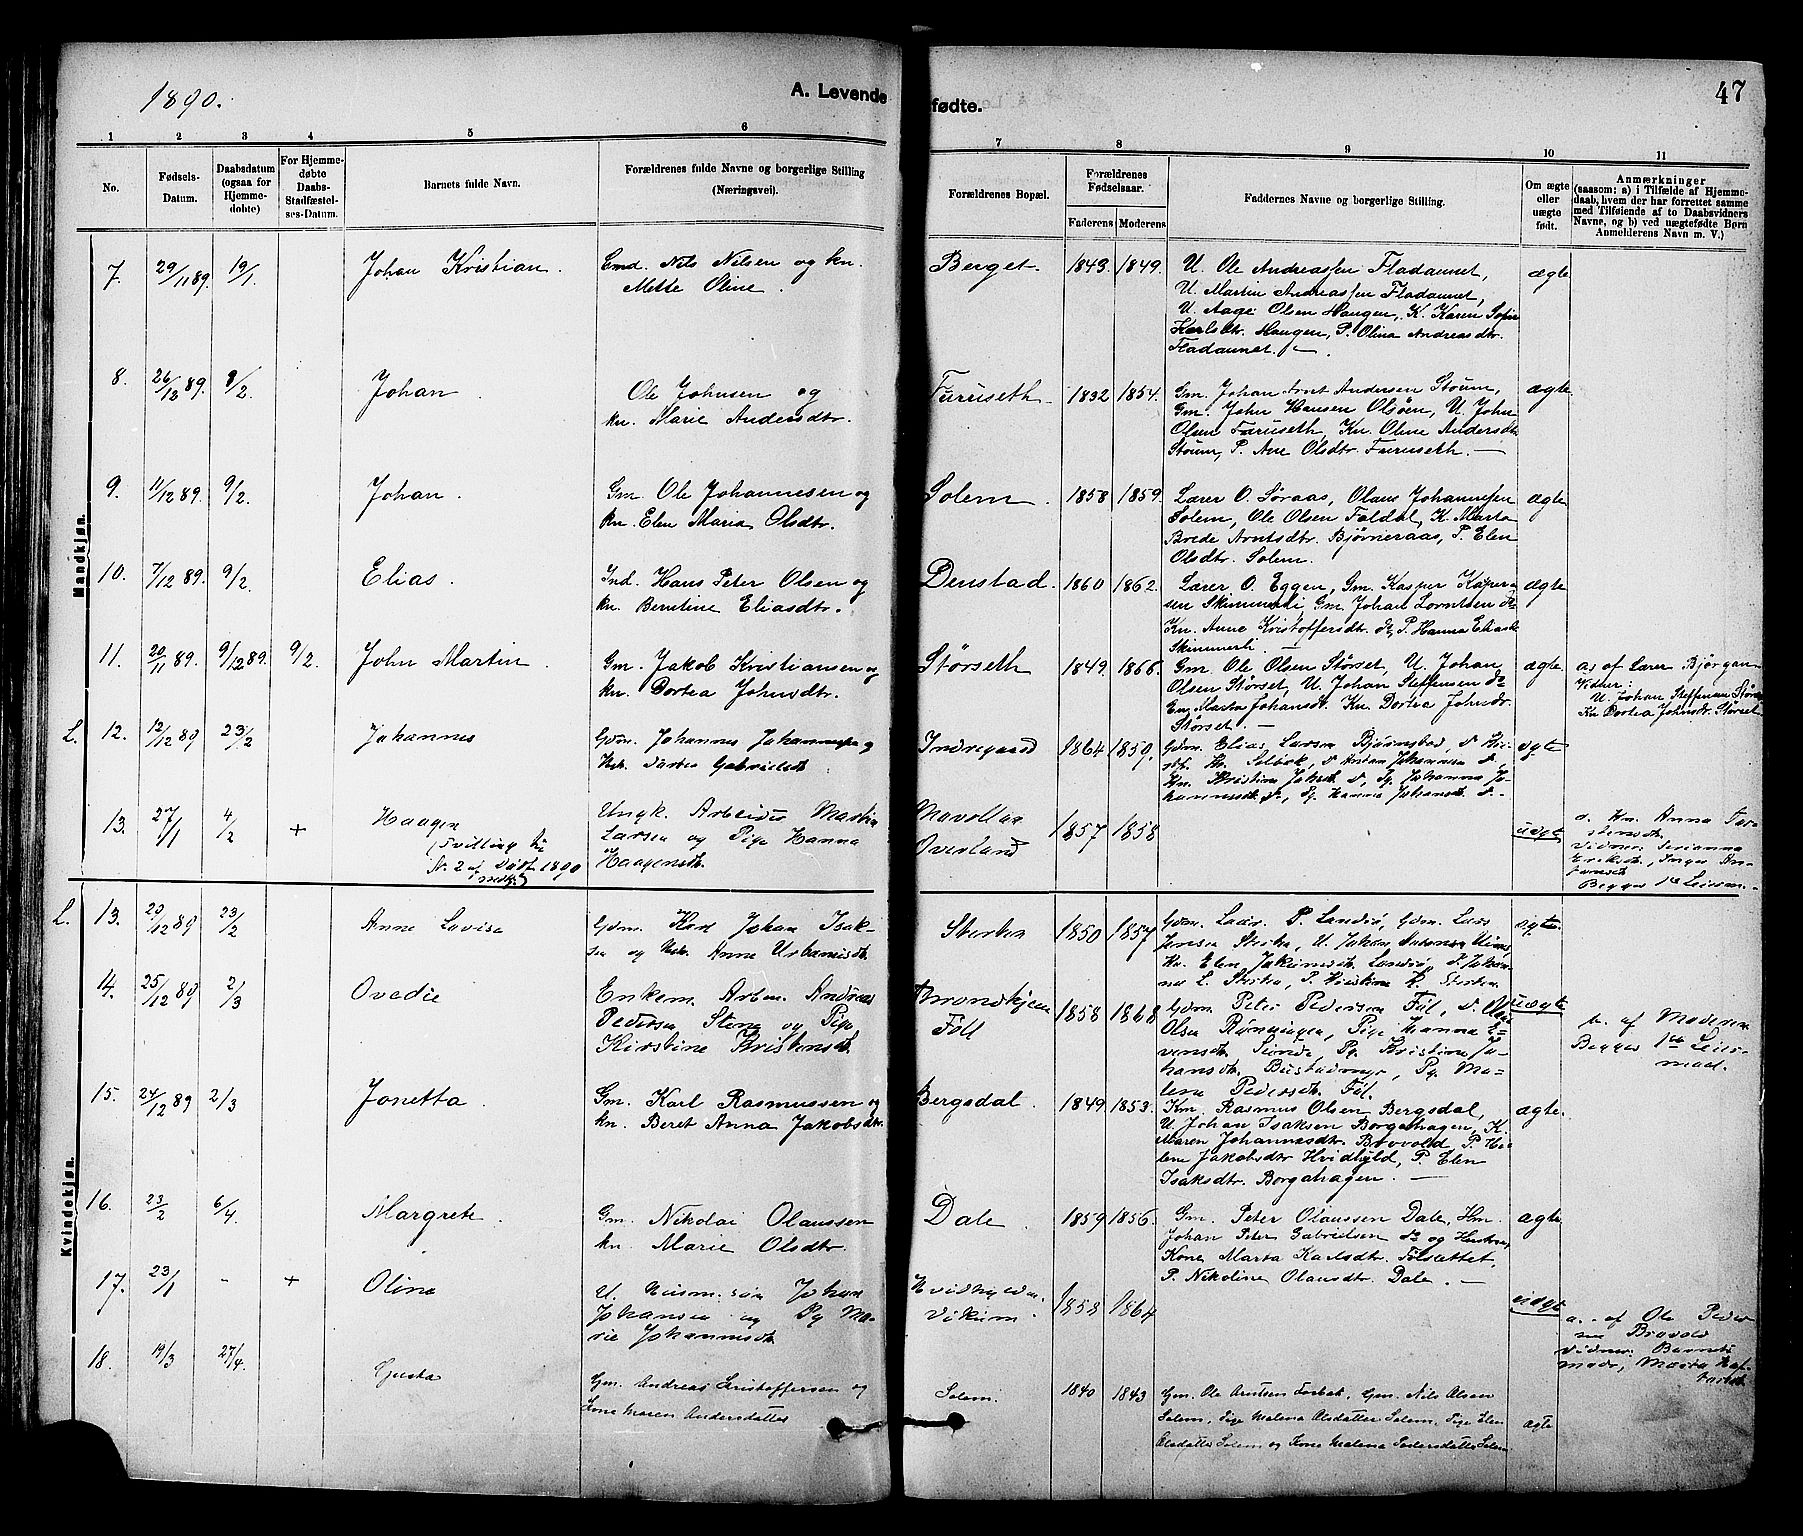 1890.
A. Levende fødte.
47
1 2 3 4 5 6 7 8 9 10 11
No.
Fødsels-Datum.
Daabsdatum (ogsaa for Hjemmedøbte)
For Hjemmedøbte Daabs-Stadfæstelses-Datum.
Barnets fulde Navn.
Forældrenes fulde Navne og borgerlige Stilling (Næringsvei).
Forældrenes Bopæl.
Forældrenes Fødselsaar.
Faderens Moderens
Faddernes Navne og borgerlige Stilling.
Om ægte eller uægte født.
Anmærkninger
(saasom: a) i Tilfælde af Hjemmedaab, hvem der har forrettet samme med Tilføiende af to Daabsvidners Navne, og b) ved uægtefødte Børn Anmelderens Navn m. V.)
Mandkjøn.
7. 29/11 89. 19/1 Johan Kristian. Gmd. Nils Nilsen og kn. Berget. 1843. 1849. U. Ole Andreassen Fladaunet, ægte
Mette Oline. U. Martin Andreassen Fladaunet,
U. Aage Olsen Haugen, K. Karen Sofie
Karlsdtr. Haugen, P. Olina Andreasdtr.
Fladaunet.
8. 26/12 89. 9/2. Johan. Ole Johnsen og Furuseth. 1832 1854. Gm. Johan Arnt Andersen Stoum, ægte
kn. Marie Andersdtr. Gm. John Hansen Olsøen, U. John
Olsen Furuseth, Kn. Oline Andersdtr.
Stoum, P. Ane Olsdtr. Furuseth.
9. 11/12 89. 9/2. Johan. Gm. Ole Johannesen og Solem. 1858 1859. Lærer O. Søraas, Olaus Johannesen ægte
kn. Elen Maria Olsdtr. Solem, Ole Olsen Foldal, K. Marta
Brede Arntsdtr. Bjørneraas, P. Elen
Olsdtr. Solem.
10. 7/12 89. 9/2. Elias. Ind. Hans Peter Olsen og Denstad. 1860 1862. Lærer O. Eggen, Gm. Kasper Kasper- ægte
kn. Berntine Eliasdtr. sen Skimmeli, Gm. Johan Lorntsen do
Kn. Anne Kristoffersdtr. do, P. Hanna Eliasdtr.
Skimmeli.
11. 20/11 89. 9/12 89. 9/2. John Martin. Gm. Jakob Kristiansen og Størseth. 1849. 1866. Gm. Ole Olsen Størset, U. Johan ægte a) af Lærer Bjørgan
kn. Dortea Johnsdtr. Olsen Størset, U. Johan Steffensen do Vidner:
En. Marta Johansdtr. Kn. Dortea Johnsdr. U. Johan Steffensen Størset
Størset Kn. Dortea Johnsdr. Størset
L. 12. 12/12 89 23/2 Johannes Gdm. Johannes Johannesen og Indregaard 1864 1859. Gdm. Elias Larsen Bjørnstad, ægte
Gabrielsdt. Johannesen
Kn. Kristine Johannesdt.
13. 27/1 4/2 + Haagen Ungk. Arbeider Martin 1857 1858 uægt a. Kn. Anna
(Tvilling til Larsen og Pige Hanna Overland Vidner:
Nr. 2 af Dødf 1890 Haagensdt. Begges 1ste Leierm.
Kvindekjøn.
L. 13. 20/12 89 23/2 Anne Lovise Gdm. Karl Johan Isak- 1850 1857 Gdm. Lars P. Landrø, Gdm. Lars ægte.
sen og Anne Urbanusdt. Kn. Elen Jakimsdt. Landrø
14. 25/12 89 2/3 Ovedie Enkem. Arbm. Andreas Throndhjem 1858 1868 Gdm. Peter Pedersen Føl, uægte b. af Moderen
Pedersen Stene og Pige Føll Olsen Rønningen, Pige Hanna E- Begges 1ste Leier-
Kirstine Kristensdt. vensdt. Pg. Kristine Jo- maal.
hansdt. Bustadmyr, Pg. Ma-
lena Pedersdt. Føl.
15. 24/12 89 2/3 Jonetta. Gm. Karl Rasmussen og Bergsdal. 1849. 1853. Km. Rasmus Olsen Bergsdal, ægte.
kn. Beret Anna Jakobsdtr. U. Johan Isaksen Borgahagen, K.
Maren Johannesdtr. Brovold, P. He-
lene Jakobsdtr Hvidhyld, P. Elen
Isaksdtr. Borgahagen.
16. 23/2 6/4. Margrete. Gm. Nikolai Olaussen Dale. 1859 1856. Gm. Peter Olaussen Dale, Hm. ægte
kn. Marie Olsdtr. Johan Peter Gabrielsen do og Hustru,
Kone Marta Karlsdtr. Følstettet,
P. Nikoline Olausdtr. Dale.
17. 23/1 - + Olina U. Husm. søn Johan 1858 1864 uægt a. af Ole Peder-
Johansen og Pg Ma- Vikum sen Brovold
rie Johannesdt. Vidner: Barnets
moder, Marta
18. 19/3 27/4. Gusta Gm. Andreas Kristoffersen og Solem. 1840 1843 Gm. Ole Arntsen Forbek, Gm. Nils Olsen ægte
Kone Maren Andersdatter Solem, Pige Malena Olsdatter Solem, Pige Elen
Olsdatter Solem og Kone Malena Pedersdatter Solem